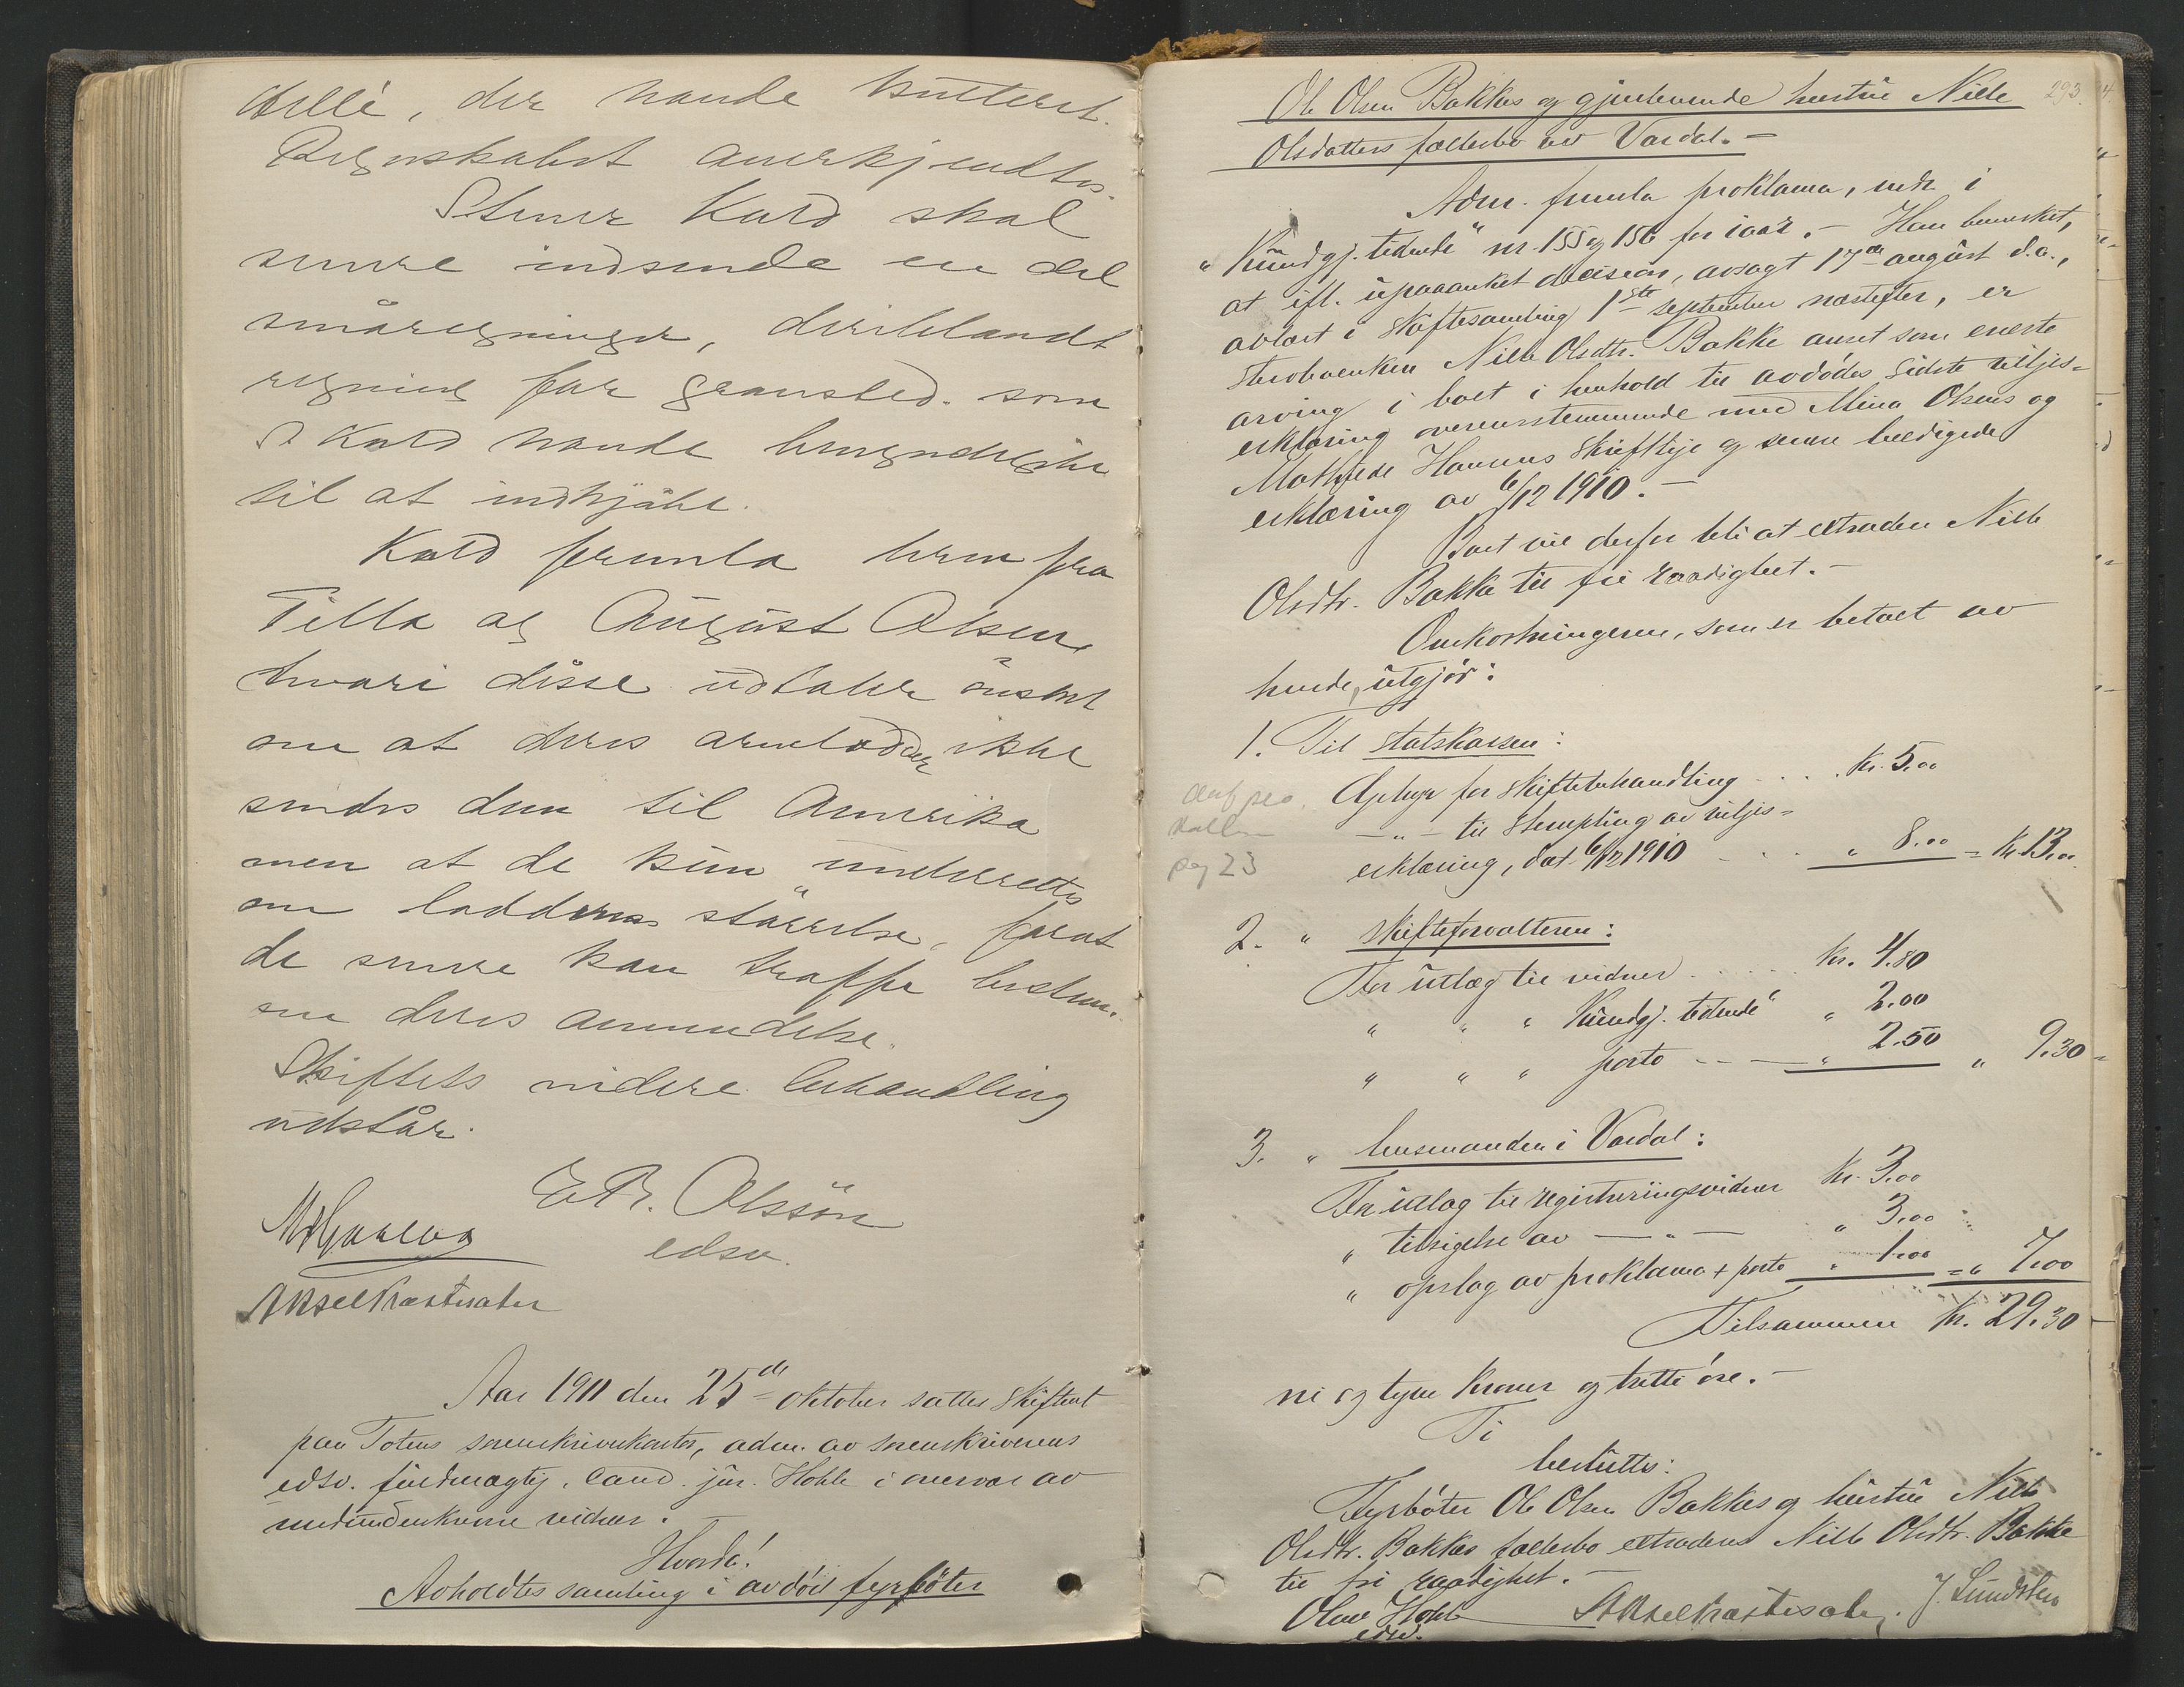 der havde kvitteret.
Regnskabet anerkjendtes.
Stener Kald skal
senere indsende en del
småregninger, deriblandt
regning for gravsted. som
St Kald havde bemyndigelse
til at indkjøbe.
Kald fremla brev fra
Tilla og August Olsen,
hvori disse udtaler ønsket
om at deres arvelodder ikke
sendes dem til Amerika
men at de kun underrettes
om loddernes størrelse, forat
de senere kan træffe bestem.
om deres anvendelse.
Skiftets videre behandling
udstår.
E. R. Olssøn
edsv.
Aksel Kræstisæter
Aar 1911 den 25de oktober sattes skifteret
paa Totens sorenskriverkontor, adm. av sorenskriverens
edsv. fuldmægtig, cand. jur. Hohle i overvær av
medundertegnede vidner. –
Hvorda!
Avholdtes samling i avdød fyrbøter
293.
Ole Olsen Bakkes og gjenlevende hustru Nille
Olsdatters fællesbo av Vardal. –
Adm. fremla proklama, indr. i
"Kundgj. tidende" nr. 155 og 156 for iaar. – Han bemerket,
at ifl. upaaanket decision, avsagt 17de august d.a.,
avlæst i skiftesamling 1ste september næstefter, er
Nille Olsdtr. Bakke anset som eneste
arving i boet i henhold til avdødes sidste viljes-
erklæring overensstemmende med Mina Olsens og
Mathilde Hansens skriftlige og senere beedigede
erklæring av 6/12 1910. –
Boet vil derfor bli at extradere Nille
Olsdtr. Bakke til fri raadighet. –
Omkostningerne, som er betalt av
hende, utgjør:
1. Til statskassen:
Gebyr for skiftebehandling . . . kr. 5.00
– " – til stempling av viljes-
erklæring, dat. 6/12 1910 . . . " 8.00 = kr. 13.00
pag 23
2. " skifteforvalteren:
For utlæg til vidner . . . . . kr. 4.80
" " " "Kundgj. tidende" " 2.00
" " " porto - - - " 2.50 " 9.30 =
3. " lensmanden i Vardal:
For utlæg til registreringsvidner kr. 3.00
" tilsigelse av – " – " 3.00
" opslag av proklama + porto " 1.00 = " 7.00
Tilsammen kr. 29.30
ni og tyve kroner og tretti øre. –
Ti
besluttes:
Fyrbøter Ole Olsen Bakkes og hustru Nille
Olsdtr. Bakkes fællesbo extraderes Nille Olsdtr. Bakke
til fri raadighet. –
Olav Hohle
edsv.
Aksel Kræstisæter. J. Lundsten